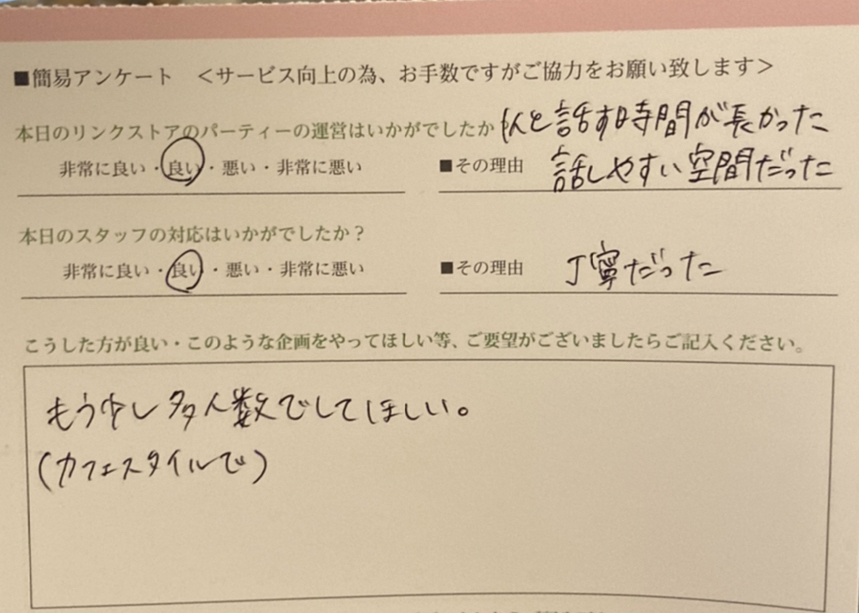 ■簡易アンケート ＜サービス向上の為、お手数ですがご協力をお願い致します＞
本日のリンクストアのパーティーの運営はいかがでしたか 人と話す時間が長かった
非常に良い・良い・悪い・非常に悪い ■その理由 話しやすい空間だった
本日のスタッフの対応はいかがでしたか？
非常に良い・良い・悪い・非常に悪い ■その理由 丁寧だった
こうした方が良い・このような企画をやってほしい等、ご要望がございましたらご記入ください。
もう少し多人数でしてほしい。
(カフェスタイルで)